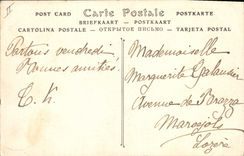 II
POST CARD Carte Postale POSTKARTE
BRIEFKAART POSTKAART
CARTOLINA POSTALE - ОТКРЫТОЕ ПИСЬМО - TARJETA POSTAL
Partons vendredi
Bonnes amitiés
Mademoiselle
Marguerite
Avenue de Brazza
Marvejols
Lozère